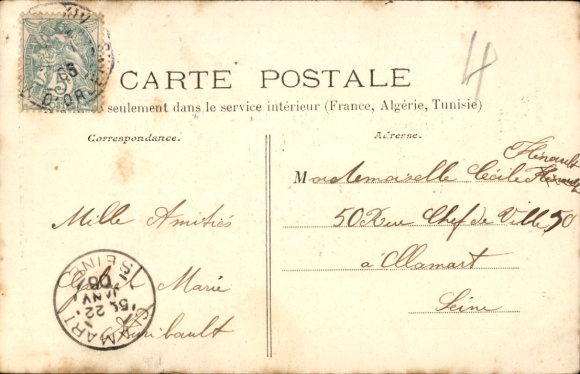 CARTE POSTALE
seulement dans le service intérieur (France, Algérie, Tunisie)
4
Correspondance.
Mille Amitiés
Marie
Adresse.
Mademoiselle Cécile
50 Rue Chef de Ville 50
a Clamart
Seine
CLAMART
SEINE
22
JANV
06